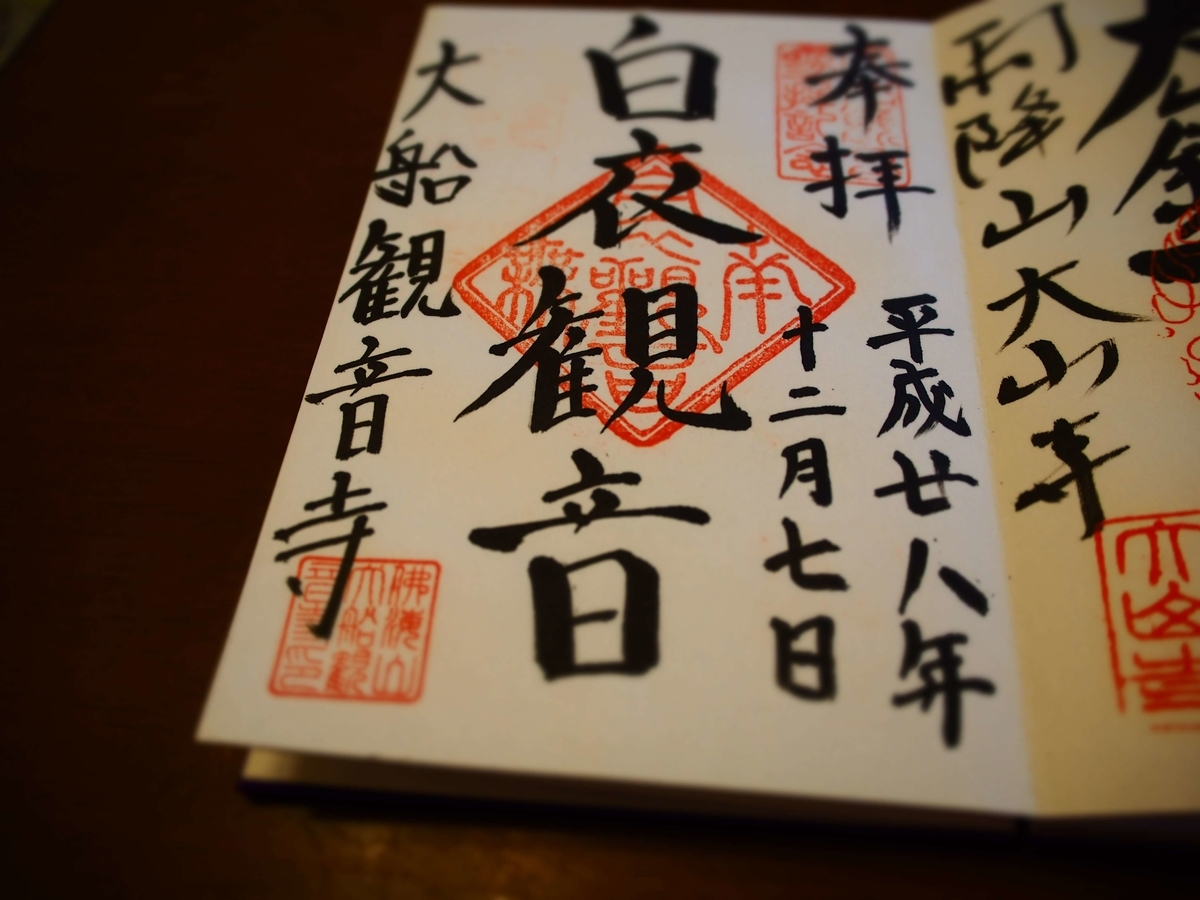 雨降山大山寺
奉拝
平成廿八年
十二月七日
白夜観音
大船観音寺
佛海山
大船観
音寺印